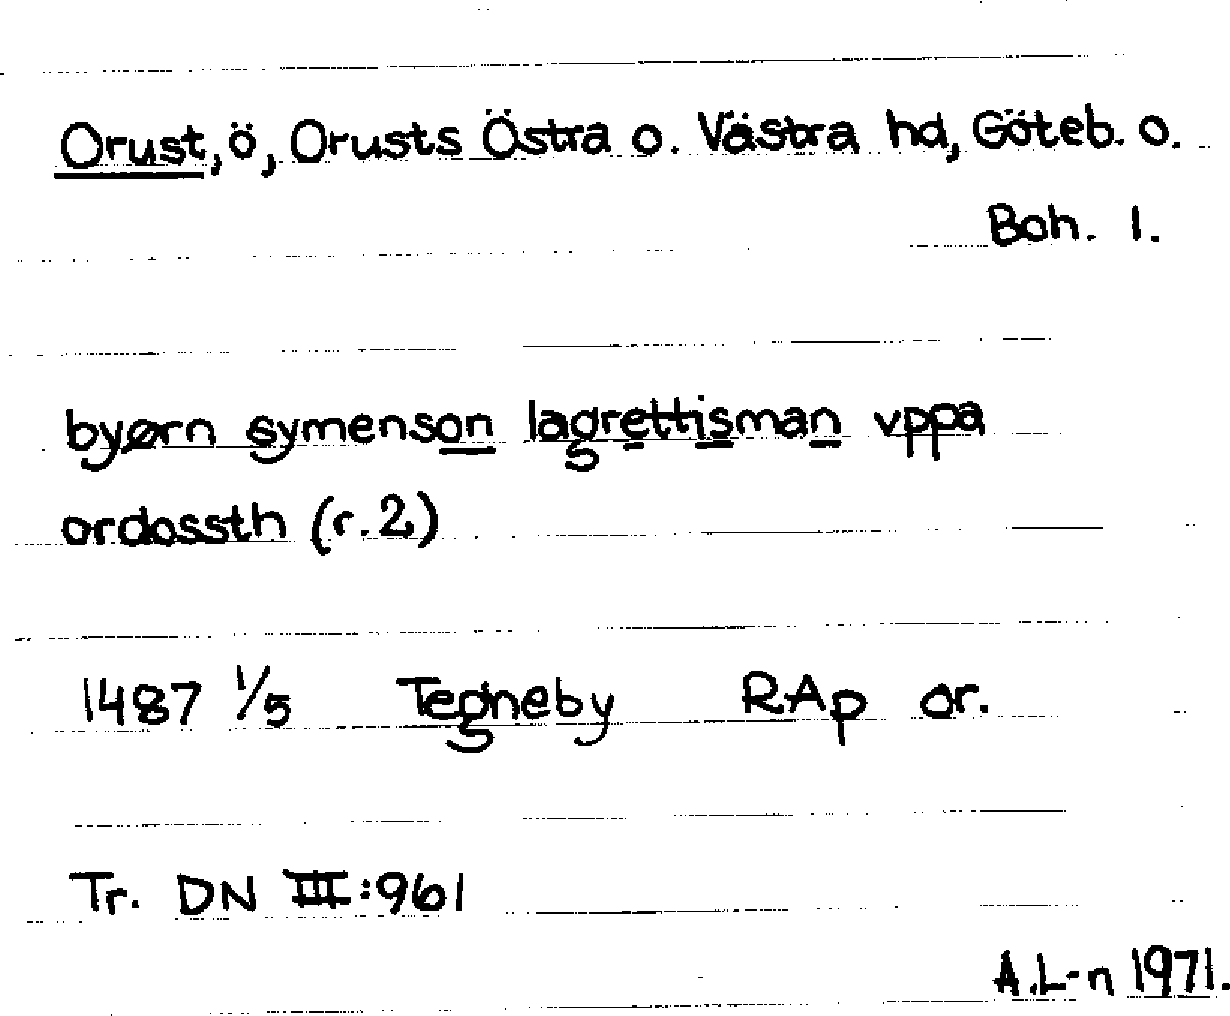 Orust, ö, Orusts Östra o. Västra hd, Göteb. o.
Boh. l.
byørn symenson lagrettisman vppa
ordossth (r. 2)
1487 1/5 Tegneby RAp or.
Tr. DN III:961
A.L-n 1971.